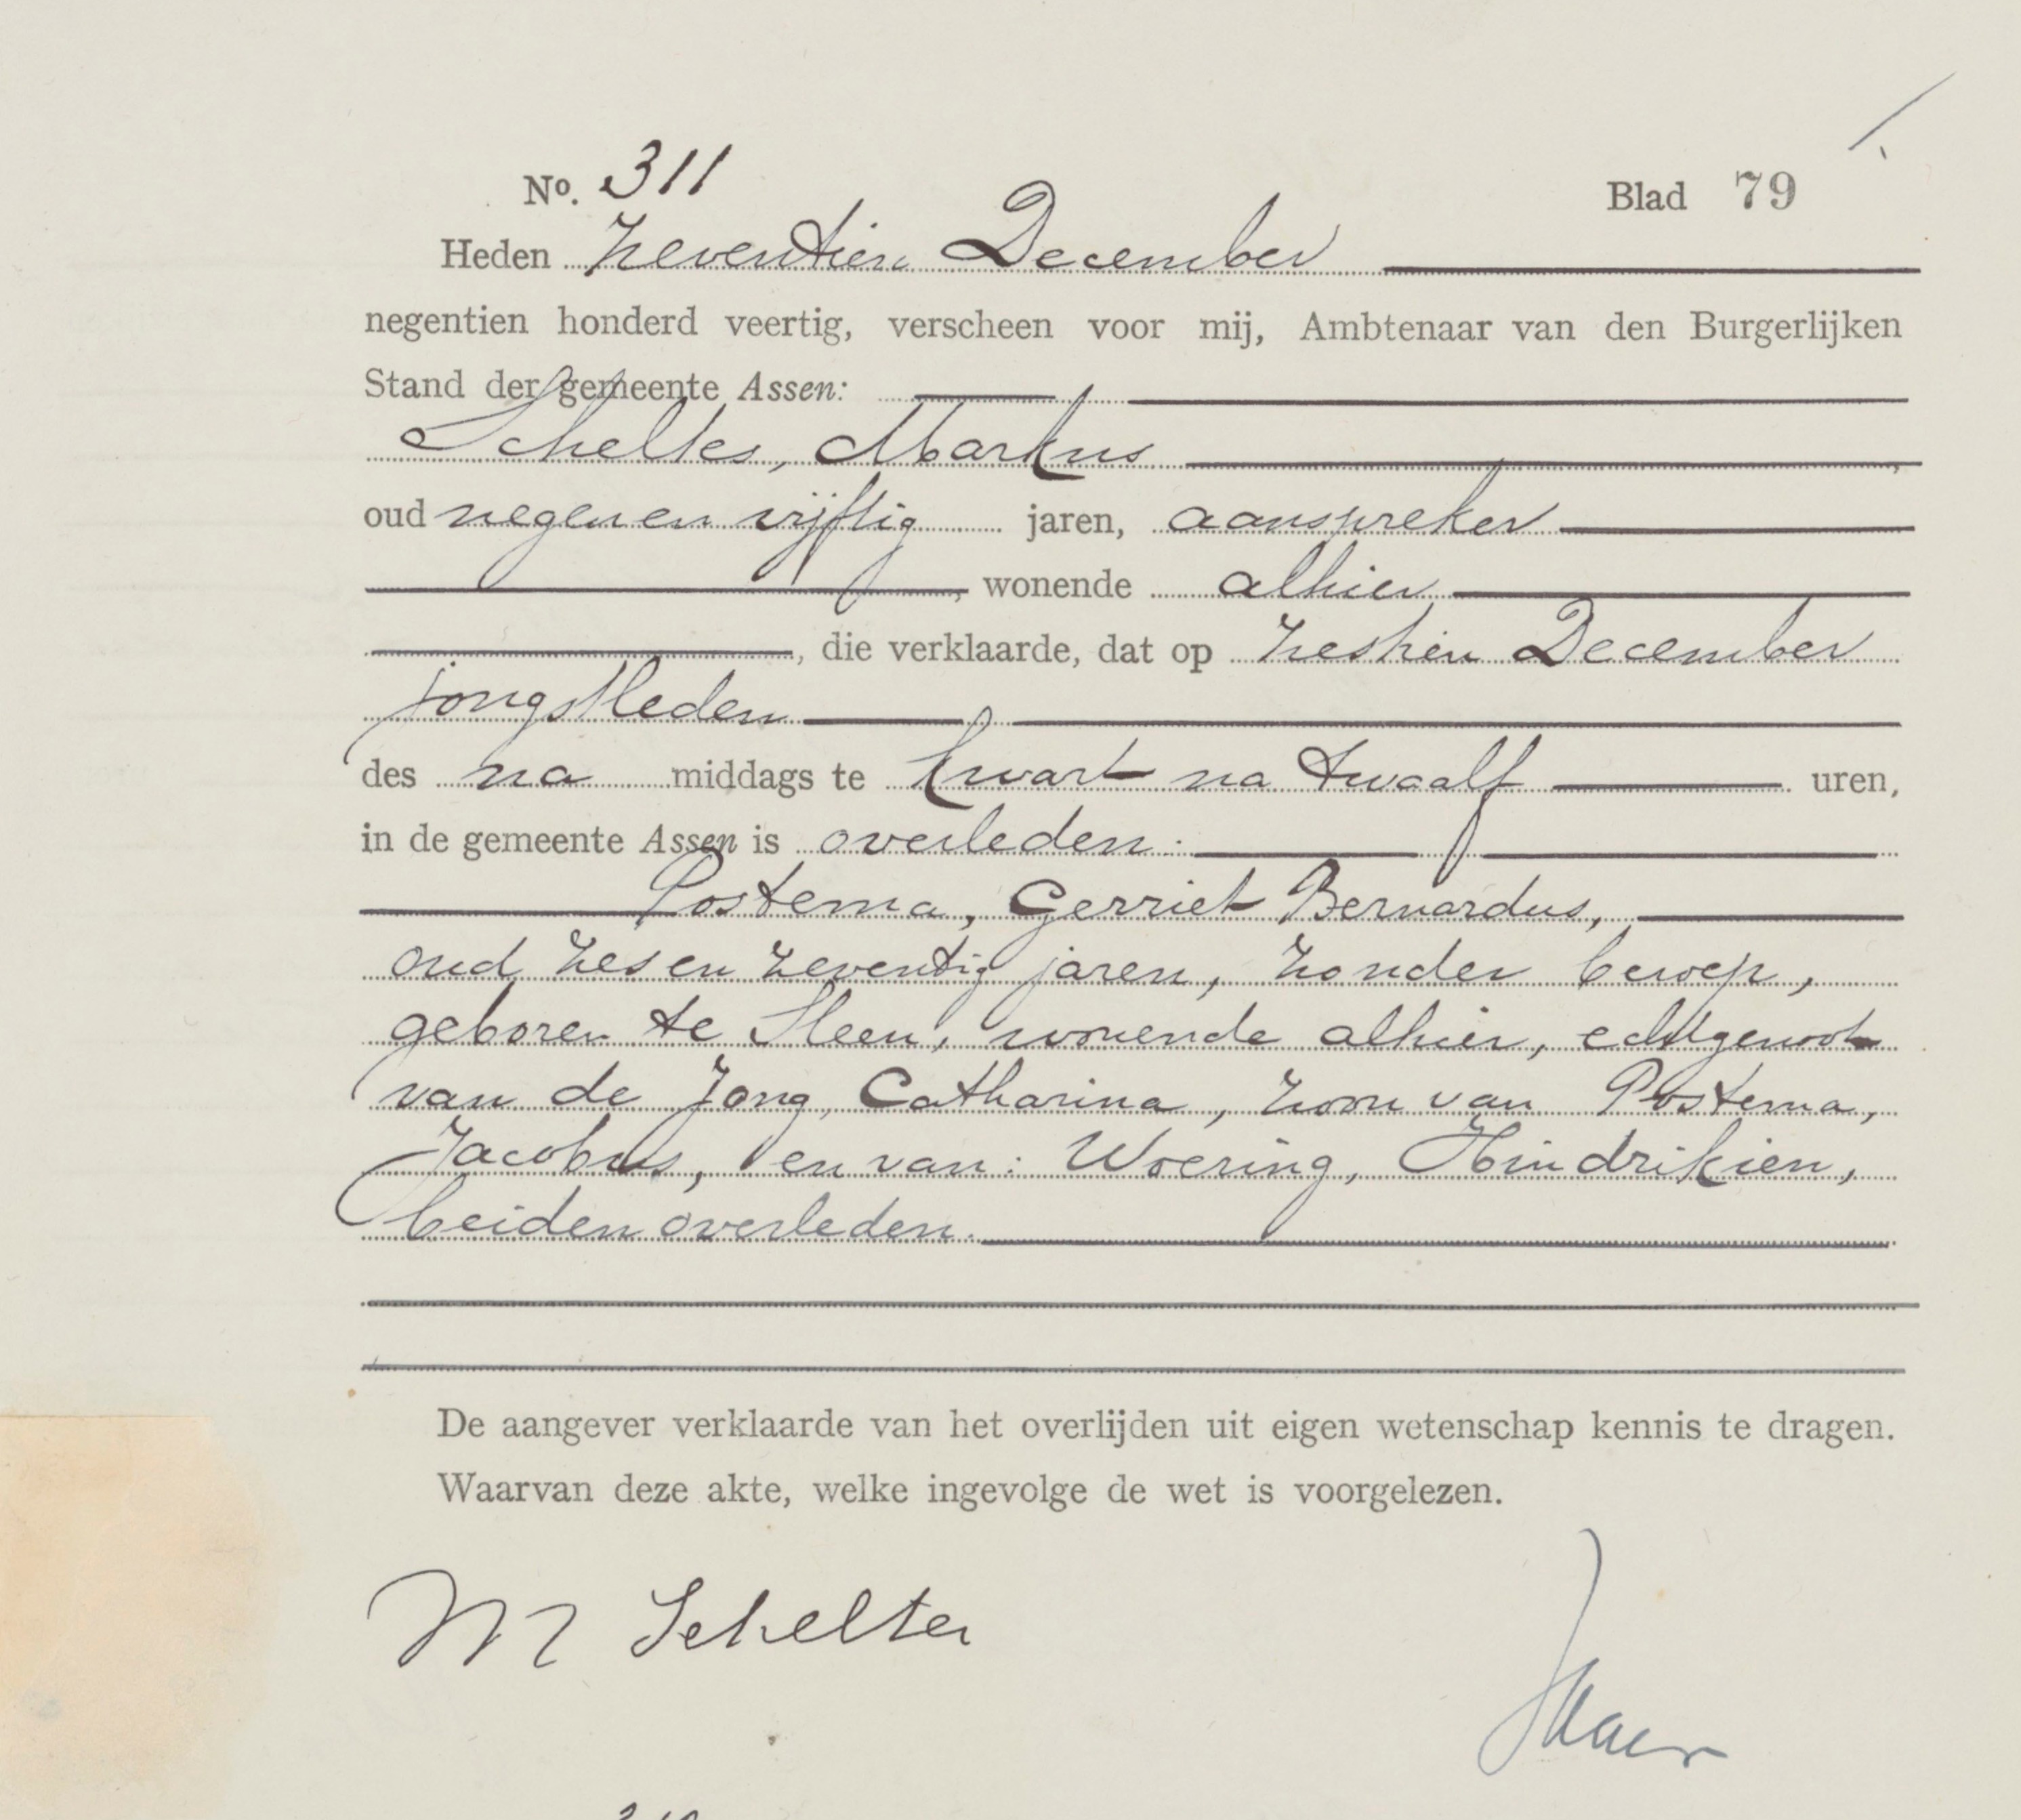 No. 311 Blad 79
Heden zeventien December
negentien honderd veertig, verscheen voor mij, Ambtenaar van den Burgerlijken
Stand der gemeente Assen:
Scheltes, Markus
oud negen en vijftig jaren, aanspreker
, wonende alhier
, die verklaarde, dat op zestien December
jongstleden
des na middags te kwart na twaalf uren,
in de gemeente Assen is overleden:
Postema, Gerriet Bernardus,
oud zes en zeventig jaren, zonder beroep,
geboren te Sleen, wonende alhier, echtgenoot
van de Jong, Catharina, zoon van Postema,
Jacobus, en van: Woering, Hindrikien,
beiden overleden.
De aangever verklaarde van het overlijden uit eigen wetenschap kennis te dragen.
Waarvan deze akte, welke ingevolge de wet is voorgelezen.
M Scheltes